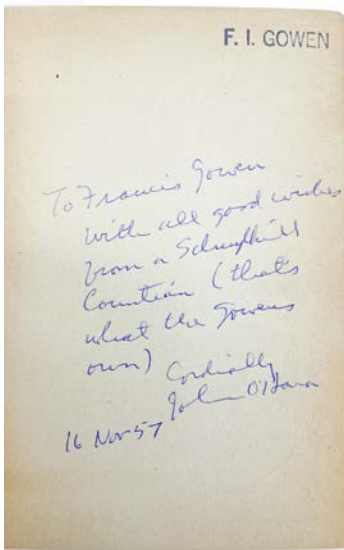 F. I. GOWEN
To Francis Gowen
with all good wishes
from a Schuylkill
Countian (that's
what the Gowens
own)
Cordially
John O'Hara
16 Nov 57